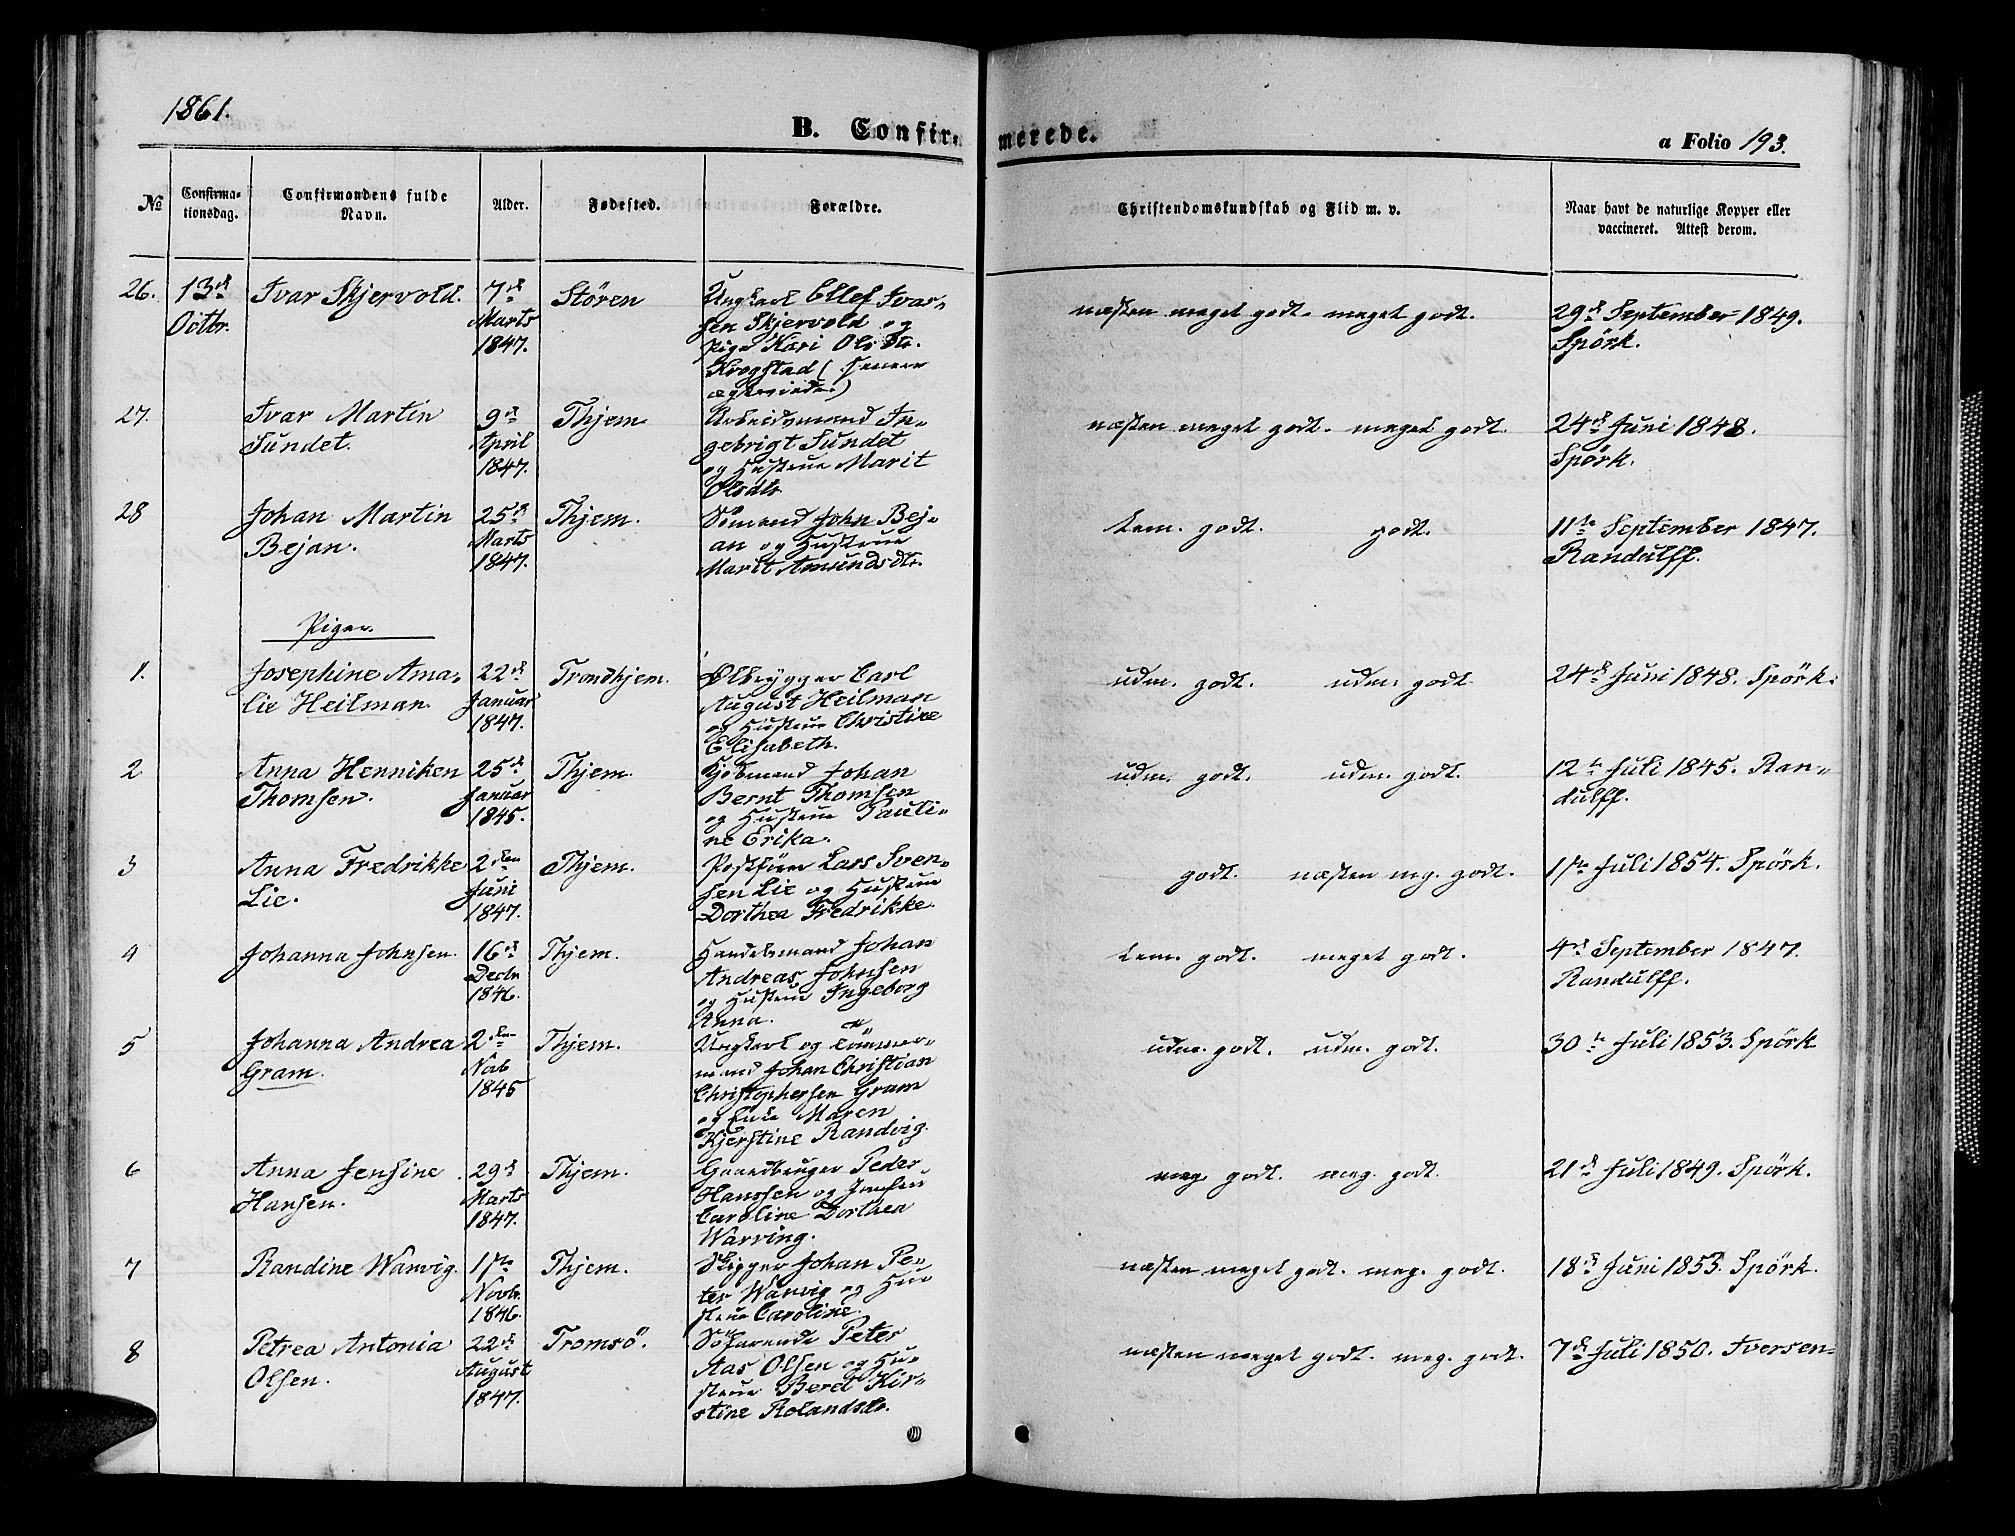 1861.
B. Confirmerede.
a Folio 193.
No
Confirmationsdag.
Confirmandens fulde Navn.
Alder.
Fødested.
Forældre.
Christendomskundskab og Flid m. v.
Naar havt de naturlige Kopper eller vaccineret. Attest derom.
26. 13d Octbr. Ivar Skjervold. 7d Marts 1847. Stören
Ungkarl Ellef Ivar-
sen Skjervold og
Pige Kari Olsdtr.
Krogstad (senere
ægteviede.)
næsten meget godt. meget godt.
29d September 1849.
Spörk.
27. Ivar Martin
Sundet.
9d April 1847. Thjem
Arbeidsmand In-
gebrigt Sundet
og Hustrue Marit
Olsdtr
næsten meget godt. meget godt.
24d Juni 1848.
Spörk.
28 Johan Martin
Bejan.
25d Marts 1847. Thjem.
Sömand John Bej-
an og Hustrue
Marit Amundsdtr.
tem. godt. godt.
11te September 1847.
Randulff.
Piger.
1. Josephine Ama-
lie Heilman.
22d Januar 1847. Trondhjem.
Ølbrygger Carl
August Heilman
og Hustrue Christine
Elisabeth.
udm. godt. udm. godt
24d Juni 1848. Spörk.
2 Anna Henniken
Thomsen.
25d Januar 1845. Thjem.
Kjöbmand Johan
Bernt Thomsen
og Hustrue Pauli-
ne Erika.
udm. godt. udm. godt.
12te Juli 1845. Ran-
dulff.
3 Anna Fredrikke
Lie.
2den Juni 1847. Thjem.
Lars Sven-
sen Lie og Hustrue
Dorthea Fredrikke.
godt. næsten mg. godt.
1ste Juli 1854. Spörk.
4 Johanna Johnsen. 16d Decbr 1846. Thjem.
Handelsmand Johan
Andreas Johnsen
og Hustrue Ingeborg
Anna.
tem. godt. meget godt.
4de September 1847.
Randulff.
5 Johanna Andrea
Gram.
2den Novb 1845 Thjem.
Ungkarl og Tömmer-
mand Johan Christian
Christophersen Gram
og Enke Maren
Kjerstine Randvig.
udm. godt. udm. godt.
30te Juli 1853. Spörk
6 Anna Jensine
Hansen.
29d Marts 1847. Thjem.
Gaardbruger Peder
Hanssen og
Caroline Dorthea
Warving.
meg. godt. meg. godt.
21d Juli 1849. Spörk.
7 Randine Warvig. 1ste Novbr. 1846. Thjem.
Skipper Johan Pe-
ter Warvig og Hu-
strue Caroline.
næsten meget godt. meg. godt.
18d Juni 1853. Spörk.
8 Petrea Antonia
Olsen.
22d August 1847. Tromsö.
Söfarende Peter
Aas Olsen og Hu-
strue Berel Kir-
stine Rolandsdtr.
næsten meget godt. meg. godt.
7d Juli 1850. Iversen